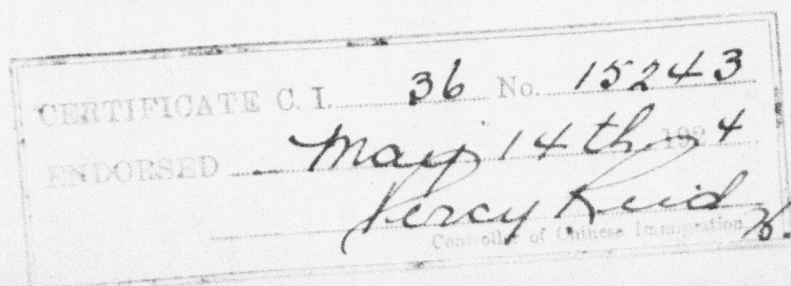 CERTIFICATE C. I. 36 No. 15243
ENDORSED May 14th 1924
Percy Reid
Controller of Chinese Immigration